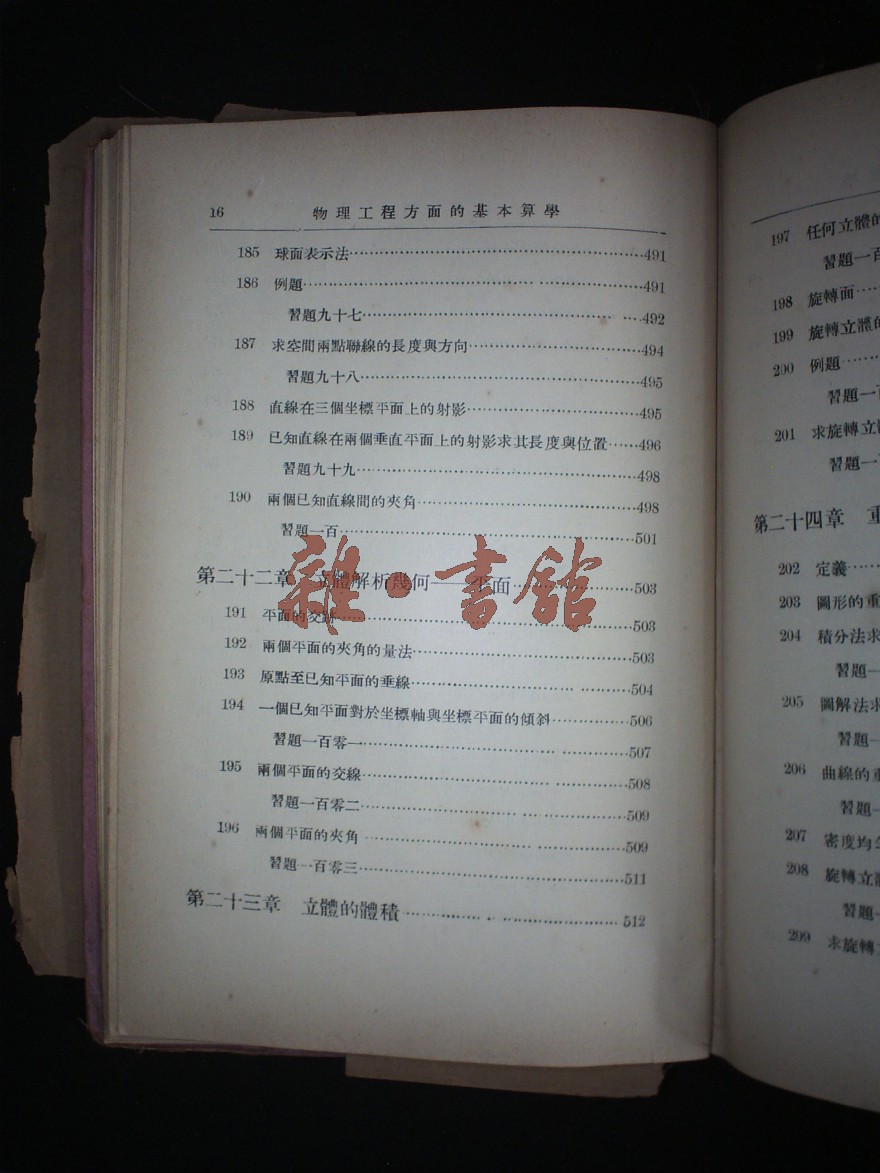 16 物理工程方面的基本算學
185 球面表示法……491
186 例題……491
習題九十七……492
187 求空間兩點聯線的長度與方向……494
習題九十八……495
188 直線在三個坐標平面上的射影……495
189 已知直線在兩個垂直平面上的射影求其長度與位置……496
習題九十九……498
190 兩個已知直線間的夾角……498
習題一百……501
第二十二章 立體解析幾何——平面……503
191 平面的交跡……503
192 兩個平面的夾角的量法……503
193 原點至已知平面的垂線……504
194 一個已知平面對於坐標軸與坐標平面的傾斜……506
習題一百零一……507
195 兩個平面的交線……508
習題一百零二……509
196 兩個平面的夾角……509
習題一百零三……511
第二十三章 立體的體積……512
雜·書館
197 任何立體的
習題一百
198 旋轉面……
199 旋轉立體的
200 例題……
習題一百
201 求旋轉立體
習題一
第二十四章 重
202 定義……
203 圖形的重
204 積分法求
習題一
205 圖解法求
習題一
206 曲線的重
習題一
207 密度均勻
208 旋轉立體
習題一
209 求旋轉立